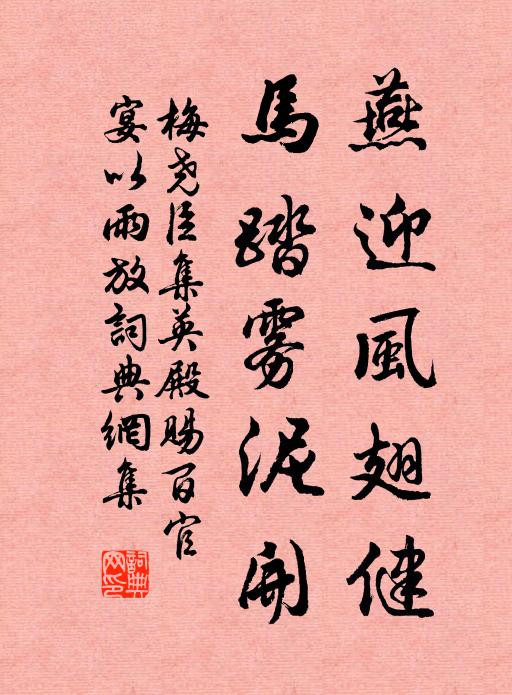 燕迎風翅健
馬踏雾泥開
梅尧臣集英殿賜百官
宴以雨放詞典網集
詞典網印